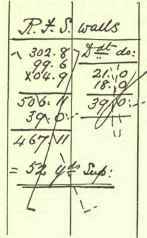 R. F. S. walls
302.8 Ddt do:
99.6 21.0
104.9 18.0
506.11 39.0
39.0
467.11
= 52 yds Sup: